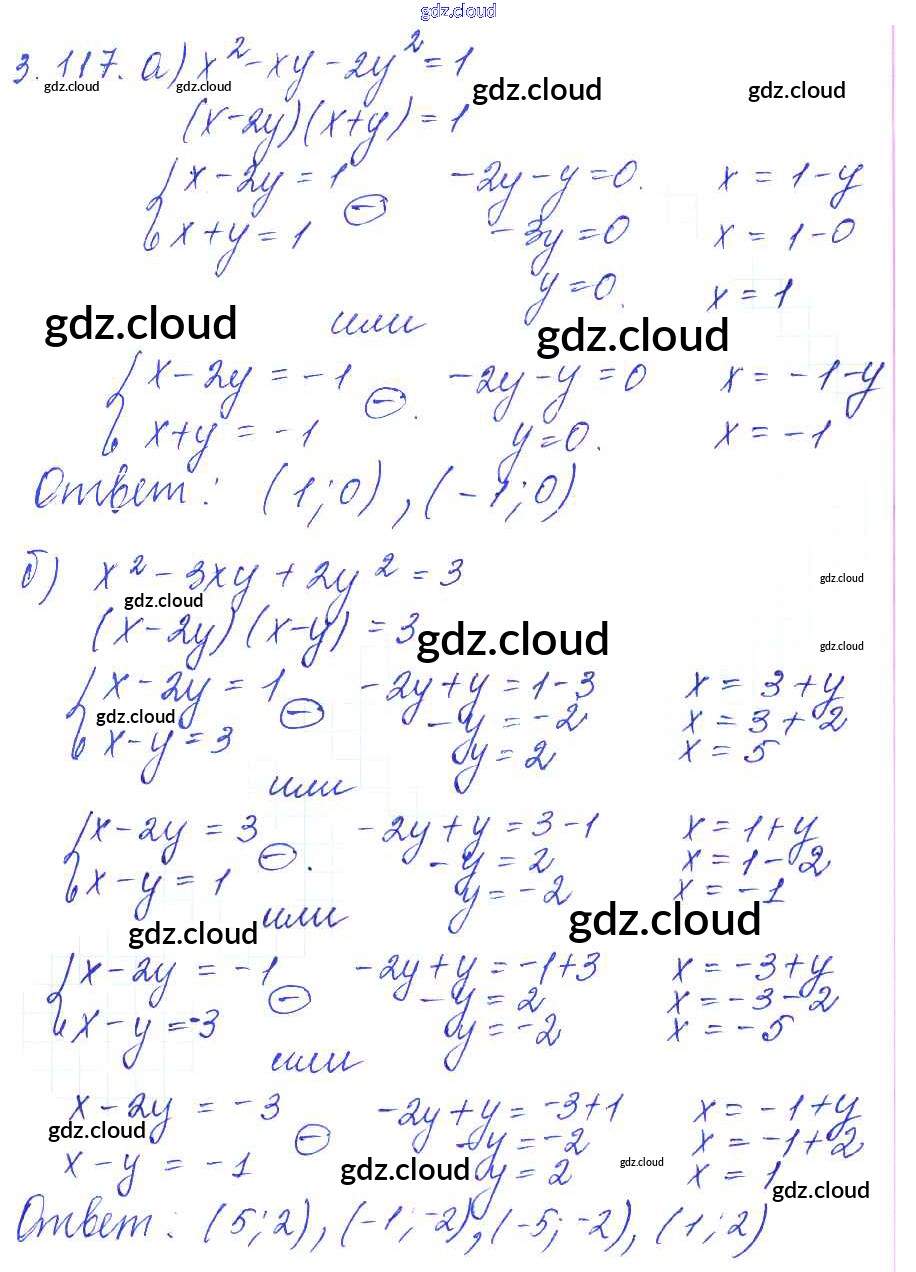 gdz.cloud
3.117. а) x² - xy - 2y² = 1
gdz.cloud gdz.cloud gdz.cloud gdz.cloud
(x-2y)(x+y) = 1
{ x - 2y = 1 ⊖ -2y - y = 0. x = 1 - y
x + y = 1 -3y = 0 x = 1 - 0
y = 0. x = 1
gdz.cloud или gdz.cloud
{ x - 2y = -1 ⊖. -2y - y = 0 x = -1 - y
x + y = -1 y = 0. x = -1
Ответ: (1; 0), (-1; 0)
б) x² - 3xy + 2y² = 3 gdz.cloud
gdz.cloud
(x-2y)(x-y) = 3 gdz.cloud gdz.cloud
{ x - 2y = 1 ⊖ -2y + y = 1 - 3 x = 3 + y
gdz.cloud -y = -2 x = 3 + 2
x - y = 3 y = 2 x = 5
или
{ x - 2y = 3 ⊖. -2y + y = 3 - 1 x = 1 + y
-y = 2 x = 1 - 2
x - y = 1 y = -2 x = -1
или gdz.cloud
gdz.cloud
{ x - 2y = -1 ⊖ -2y + y = -1 + 3 x = -3 + y
-y = 2 x = -3 - 2
x - y = -3 y = -2 x = -5
или
x - 2y = -3 ⊖ -2y + y = -3 + 1 x = -1 + y
gdz.cloud -y = -2 x = -1 + 2
x - y = -1 gdz.cloud y = 2 gdz.cloud x = 1
gdz.cloud
Ответ: (5; 2), (-1; -2), (-5; -2), (1; 2)